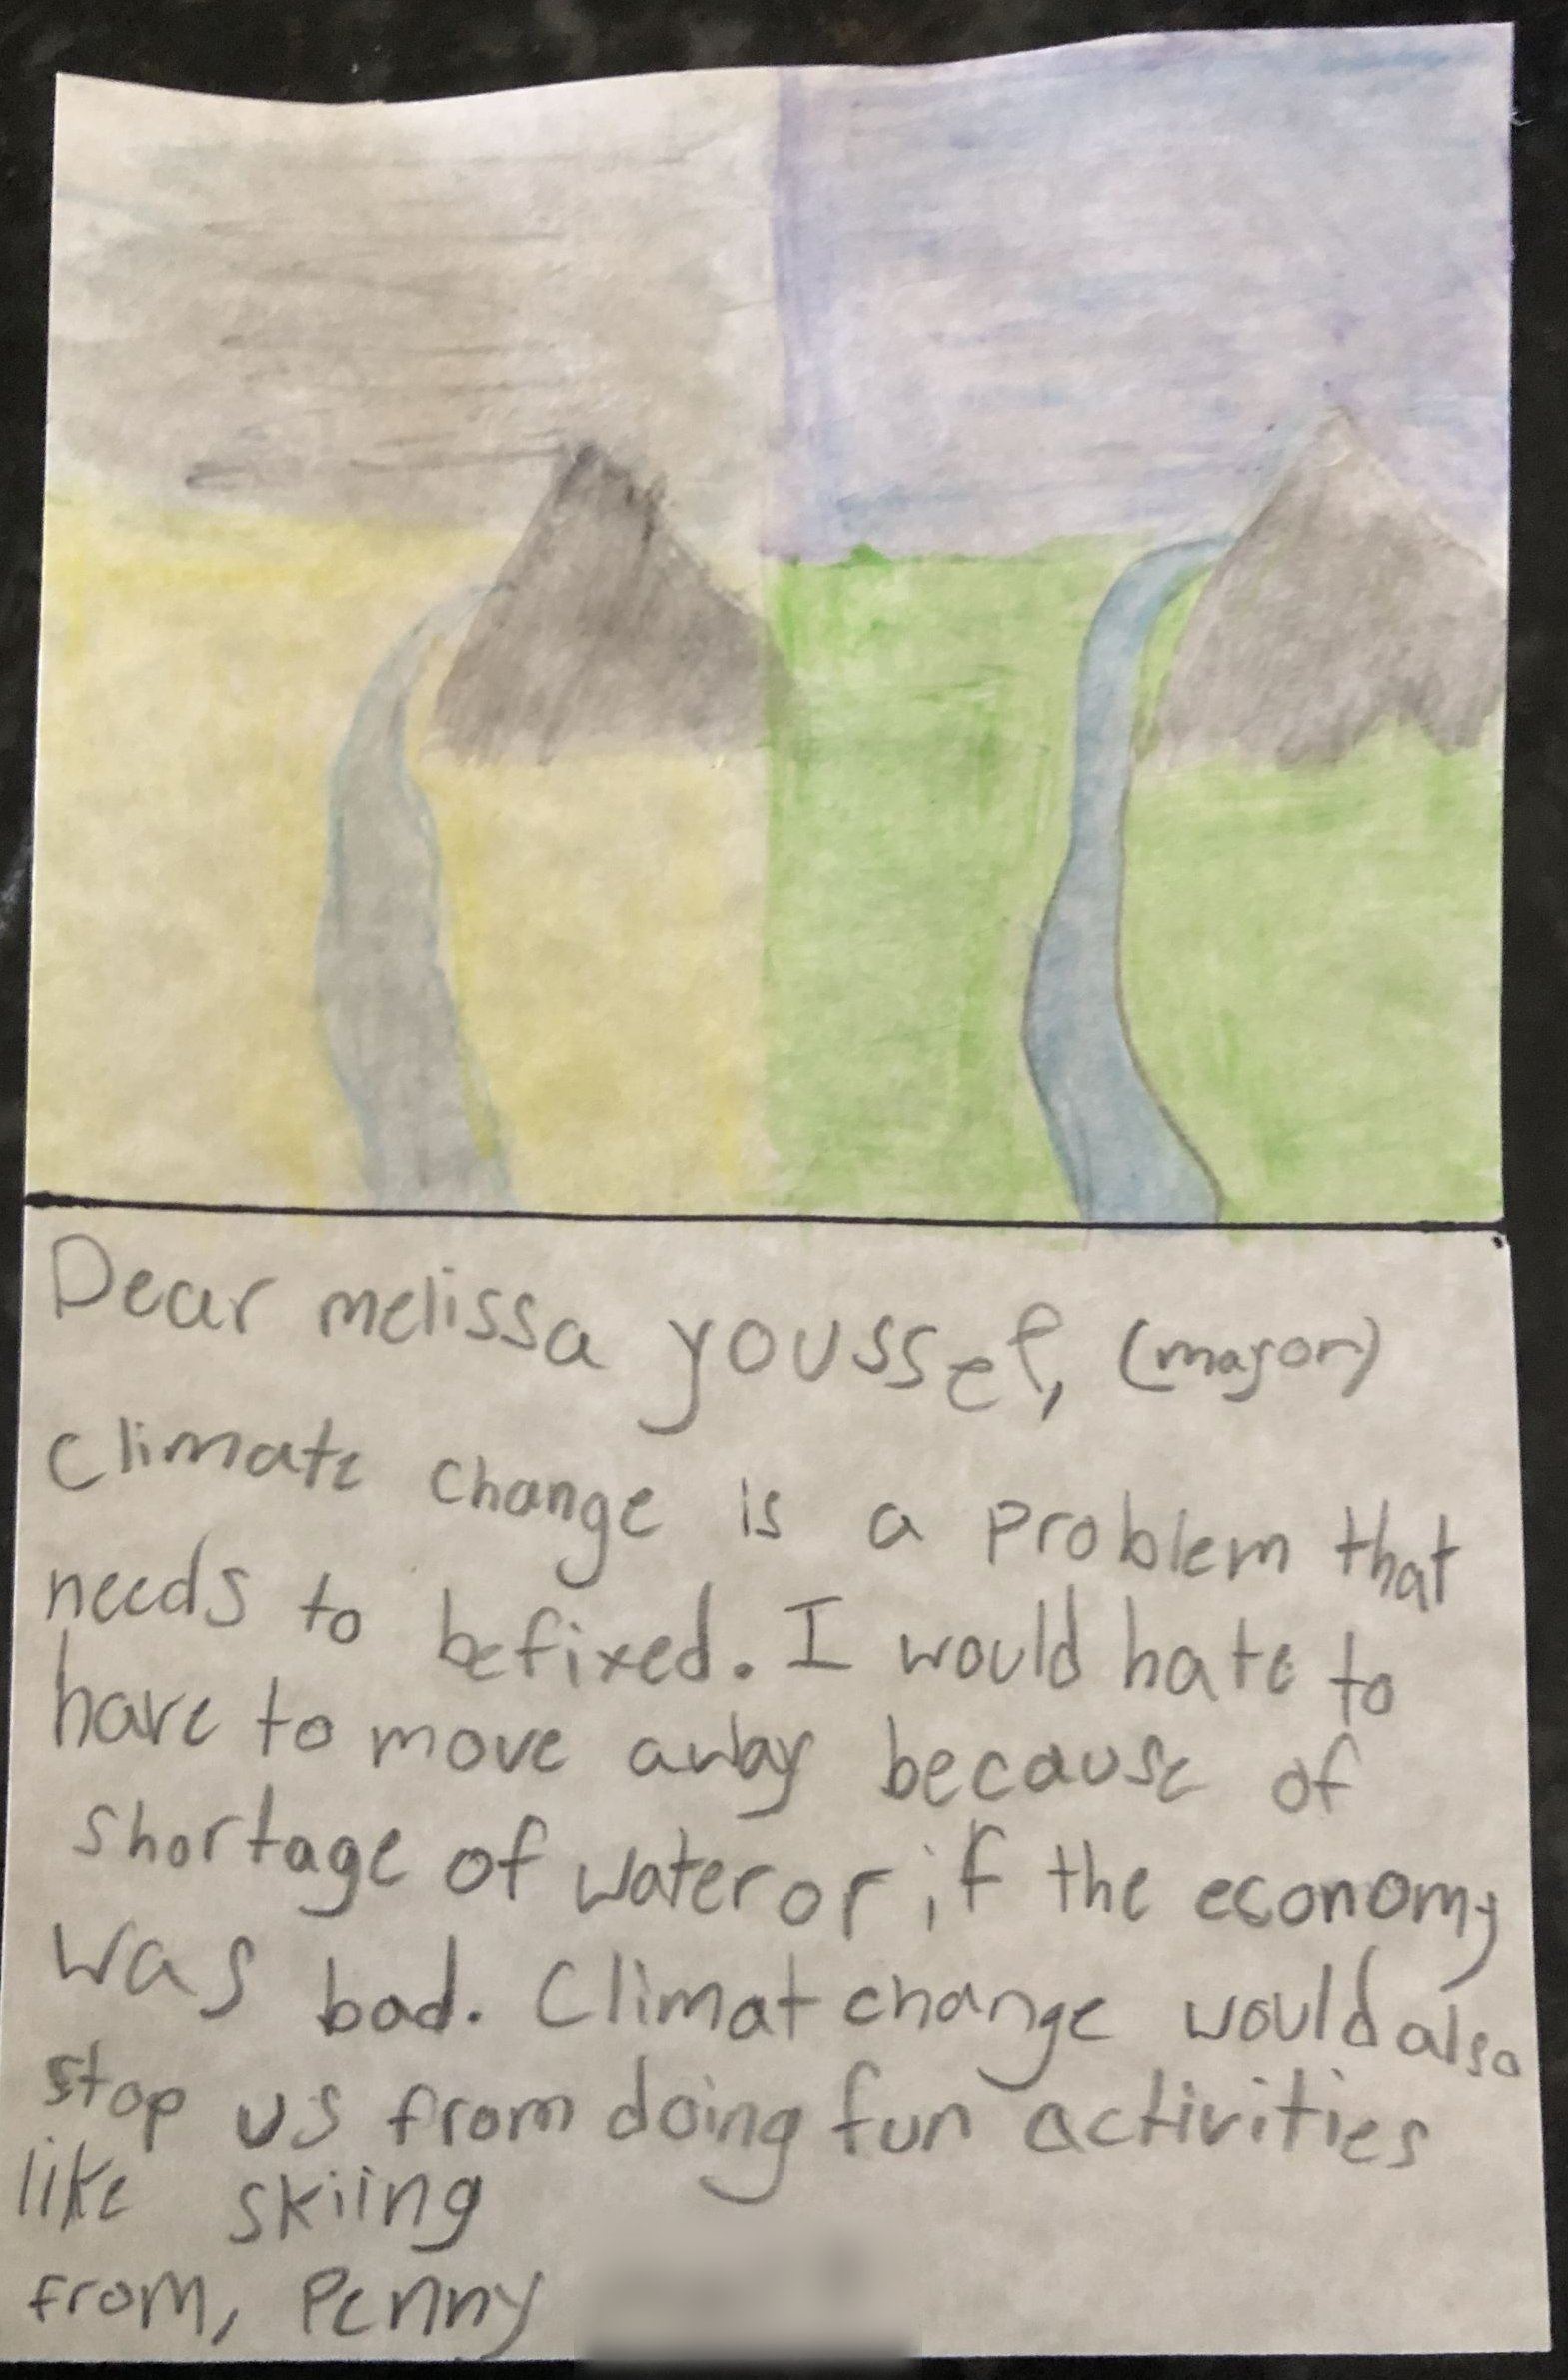 Dear melissa youssef, (major)
climate change is a problem that
needs to befixed. I would hate to
have to move away because of
shortage of water or if the economy
was bad. Climat change would also
stop us from doing fun activities
like skiing
from, Penny